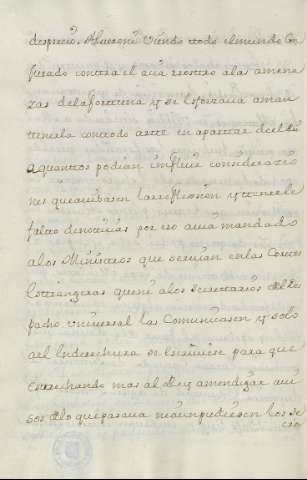 desprecio. Alveroni viendo todo el mundo Con
jurado contra el avia rostro a las amena
zas de la fortuna y se esforzava a man
tenerla con todo arte en apartar de el Rei
a quanttos podian influir considerazio
nes que avibasen la reflexion y tenerle
falto de noticias por eso avia mandado
a los Ministros que servian en las Cortes
Estrangeras que ni a los Secretarios del Des
pacho universal las Comunicasen y solo
a el en derechura se escriviese para que
estrechando mas al Rey a mendigar avi
sos de lo que pasava no aun pudiesen los Se
cre